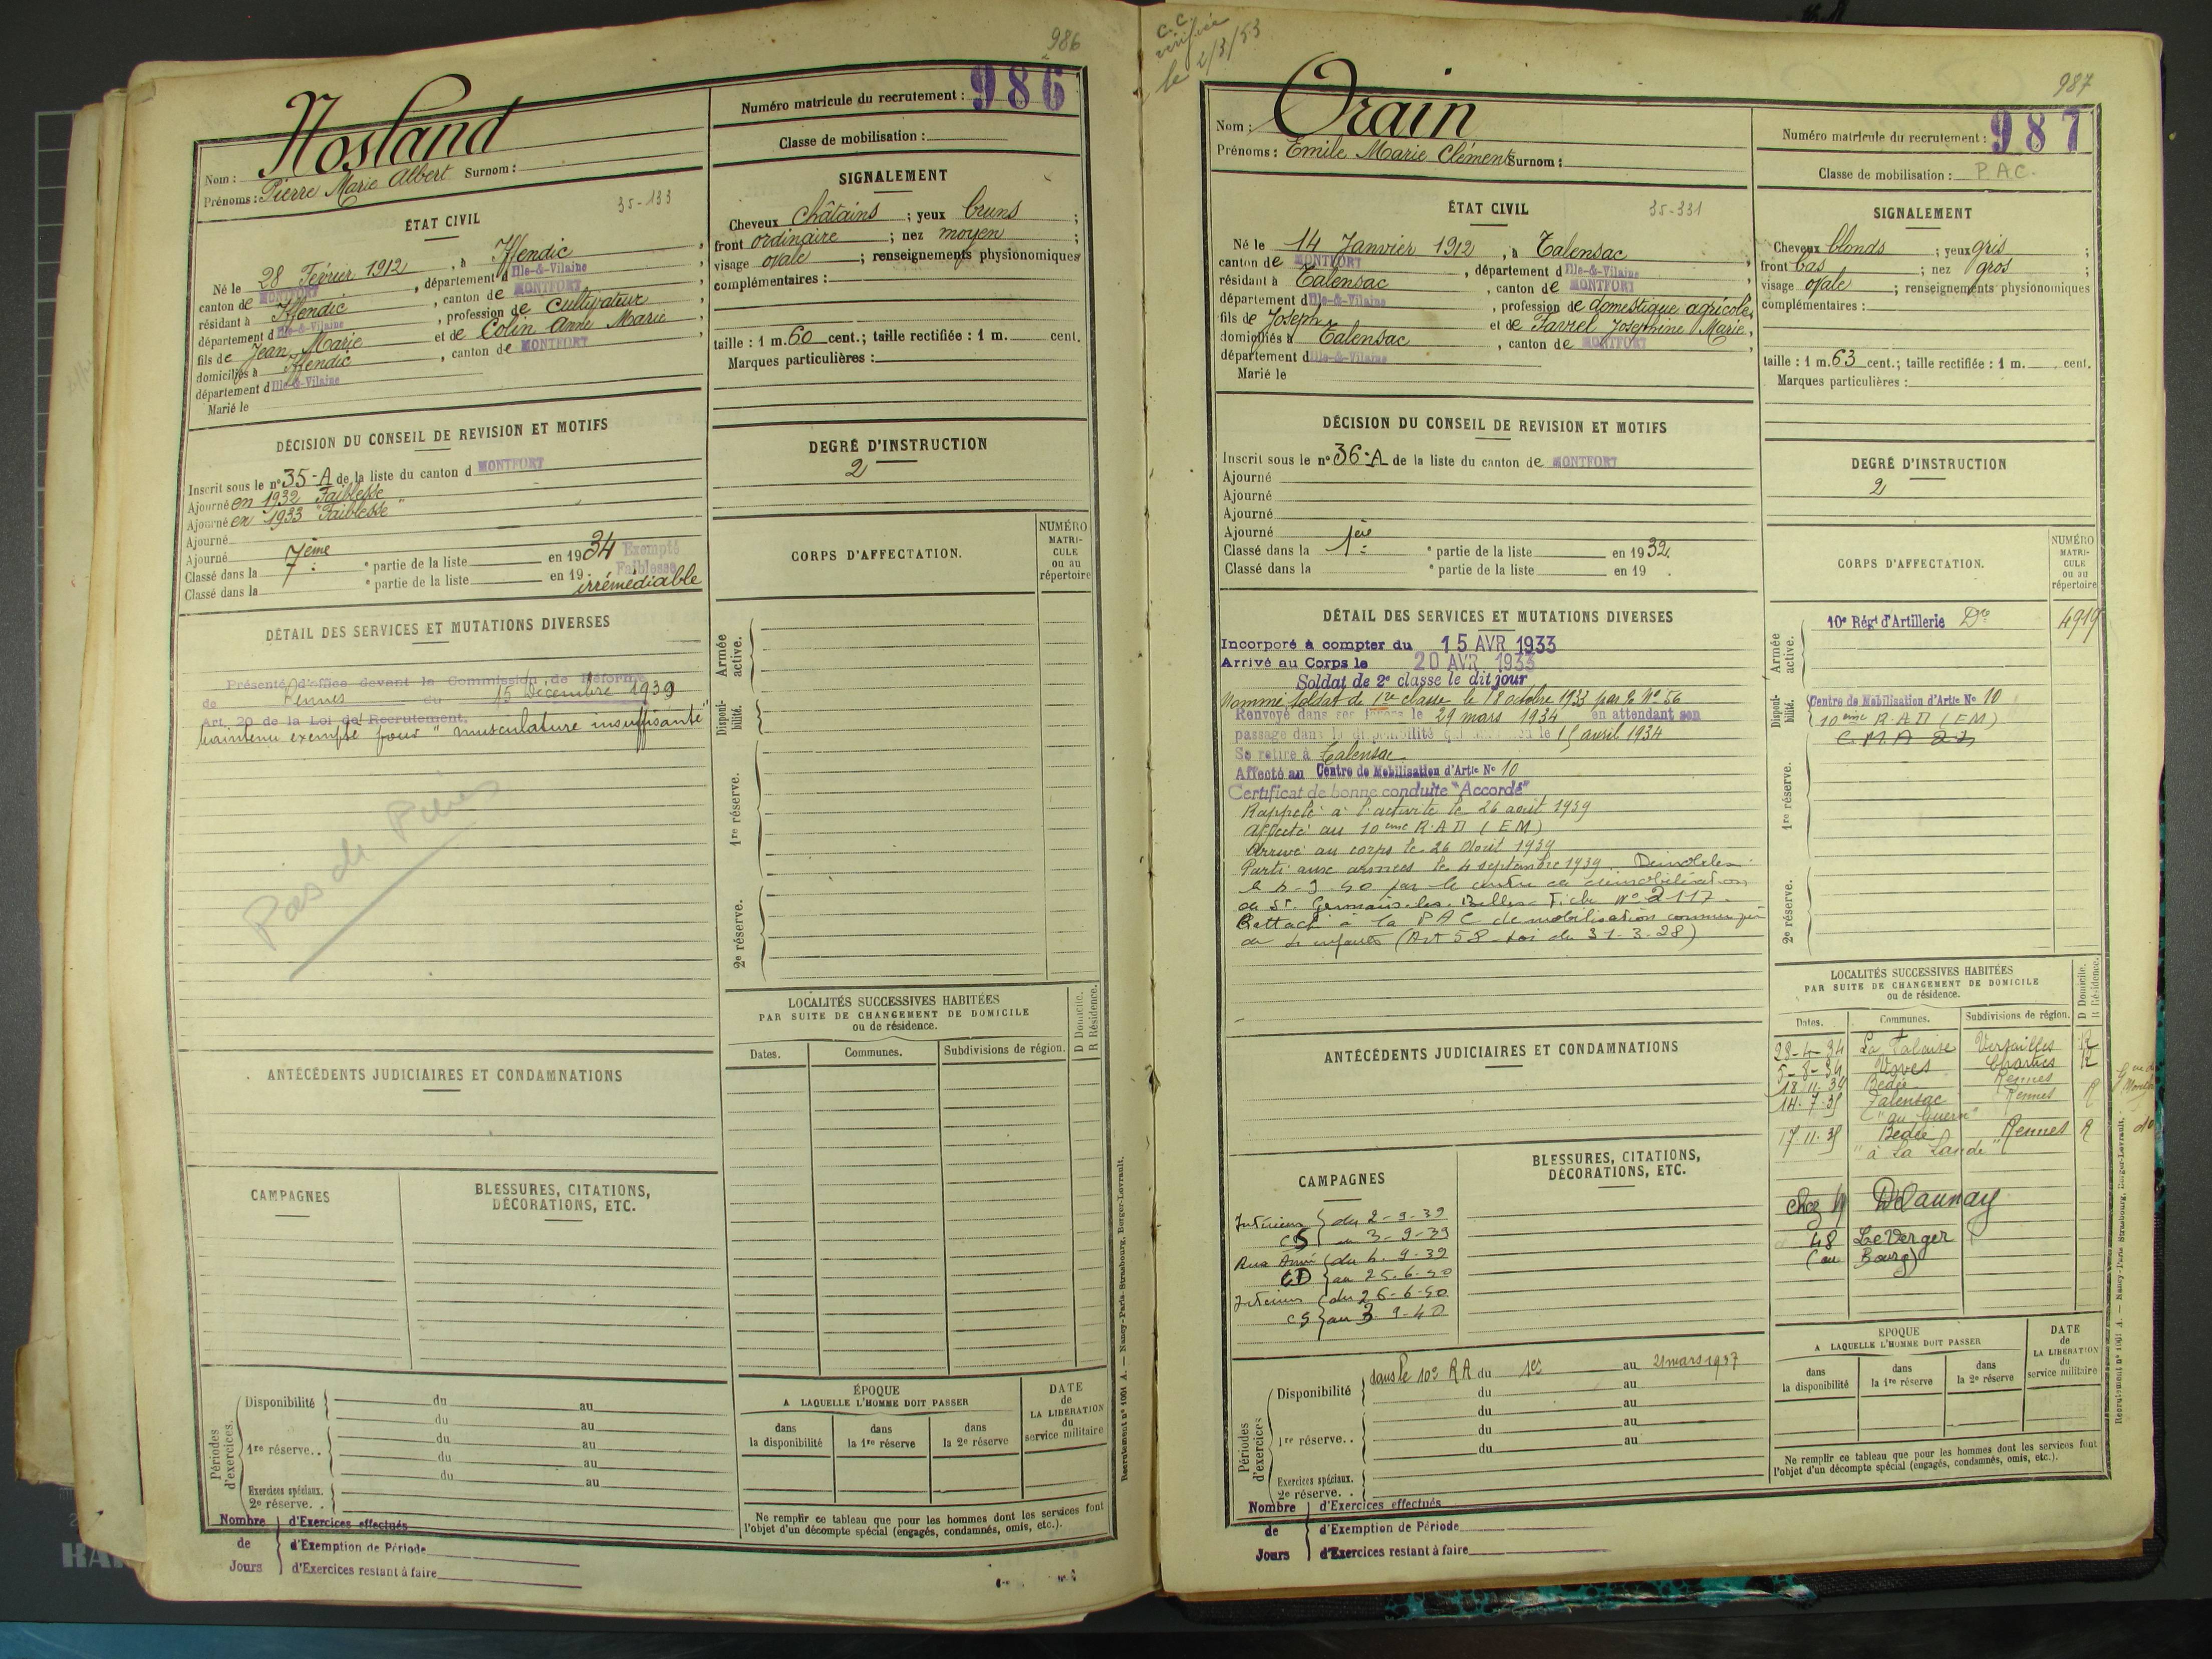 986
Nom : Nosland
Prénoms : Pierre Marie Albert Surnom :
Numéro matricule du recrutement : 986
Classe de mobilisation :
ÉTAT CIVIL
35-133
Né le 28 Février 1912, à Iffendic,
canton de MONTFORT, département d Ille-&-Vilaine,
résidant à Iffendic, canton de MONTFORT,
département d Ille-&-Vilaine, profession de cultivateur
fils de Jean Marie et de Colin Anne Marie,
domiciliés à Iffendic, canton de MONTFORT,
département d Ille-&-Vilaine
Marié le
SIGNALEMENT
Cheveux châtains ; yeux bruns ;
front ordinaire ; nez moyen ;
visage ovale ; renseignements physionomiques
complémentaires :
taille : 1 m. 60 cent.; taille rectifiée : 1 m. cent.
Marques particulières :
DÉCISION DU CONSEIL DE REVISION ET MOTIFS
Inscrit sous le n° 35-A de la liste du canton d MONTFORT
Ajourné en 1932 Faiblesse
Ajourné en 1933 "Faiblesse"
Ajourné
Ajourné
Classé dans la 7ème e partie de la liste en 1934 Exempté
Classé dans la e partie de la liste en 19 . Faiblesse
irrémédiable
DEGRÉ D'INSTRUCTION
2
CORPS D'AFFECTATION.
NUMÉRO
MATRI-
CULE
ou au
répertoire
DÉTAIL DES SERVICES ET MUTATIONS DIVERSES
Présenté d'office devant la Commission de Réforme
de Rennes du 15 Décembre 1939
Art. 20 de la Loi de Recrutement.
Maintenu exempté pour "musculature insuffisante"
Pas de
Armée
active.
Disponi-
bilité.
1re réserve.
2e réserve.
LOCALITÉS SUCCESSIVES HABITÉES
PAR SUITE DE CHANGEMENT DE DOMICILE
ou de résidence.
D Domicile.
R Résidence.
Dates. Communes. Subdivisions de région.
ANTÉCÉDENTS JUDICIAIRES ET CONDAMNATIONS
CAMPAGNES
BLESSURES, CITATIONS,
DÉCORATIONS, ETC.
Périodes
d'exercices.
Disponibilité du au
du au
1re réserve. . du au
du au
du au
Exercices spéciaux.
2e réserve. .
Nombre d'Exercices effectués
de d'Exemption de Période
Jours d'Exercices restant à faire
ÉPOQUE
A LAQUELLE L'HOMME DOIT PASSER
dans
la disponibilité
dans
la 1re réserve
dans
la 2e réserve
DATE
de
LA LIBÉRATION
du
service militaire
Ne remplir ce tableau que pour les hommes dont les services font
l'objet d'un décompte spécial (engagés, condamnés, omis, etc.).
Recrutement n° 1001 A. — Nancy-Paris-Strasbourg, Berger-Levrault.
C.C.
vérifiée
le 2/3/53
987
Nom : Orain
Prénoms : Emile Marie Clément Surnom :
Numéro matricule du recrutement : 987
Classe de mobilisation : P.A.C.
ÉTAT CIVIL
35-331
Né le 14 Janvier 1912, à Talensac
canton de MONTFORT, département d Ille-&-Vilaine,
résidant à Talensac, canton de MONTFORT
département d Ille-&-Vilaine, profession de domestique agricole,
fils de Joseph et de Favrel Joséphine Marie,
domiciliés à Talensac, canton de MONTFORT,
département d Ille-&-Vilaine
Marié le
SIGNALEMENT
Cheveux blonds ; yeux gris ;
front bas ; nez gros ;
visage ovale ; renseignements physionomiques
complémentaires :
taille : 1 m. 63 cent.; taille rectifiée : 1 m. cent.
Marques particulières :
DÉCISION DU CONSEIL DE REVISION ET MOTIFS
Inscrit sous le n° 36-A de la liste du canton de MONTFORT
Ajourné
Ajourné
Ajourné
Ajourné
Classé dans la 1ère e partie de la liste en 1932.
Classé dans la e partie de la liste en 19 .
DEGRÉ D'INSTRUCTION
2
CORPS D'AFFECTATION.
NUMÉRO
MATRI-
CULE
ou au
répertoire
DÉTAIL DES SERVICES ET MUTATIONS DIVERSES
Incorporé à compter du 15 AVR 1933
Arrivé au Corps le 20 AVR 1933
Soldat de 2e classe le dit jour
Nommé soldat de 1re classe le 18 octobre 1933 par N° 56
Renvoyé dans ses foyers le 29 mars 1934 en attendant son
passage dans la disponibilité le 15 avril 1934
Se retire à Talensac
Affecté au Centre de Mobilisation d'Artie N° 10
Certificat de bonne conduite "Accordé"
Rappelé à l'activité le 26 août 1939
Affecté au 10ème R.A.D (EM)
Arrivé au corps le 26 Août 1939
Parti aux armées le 4 septembre 1939
le 9 40 par le centre de démobilisation
de St. Germain-les-Belles Fiche N° 2117.
Rattaché à la PAC de mobilisation comme père
de enfants (Art 58 Loi du 31-3-28)
Armée
active.
10e Régt d'Artillerie Dre 4919
Disponi-
bilité.
Centre de Mobilisation d'Artie N° 10
10ème R.A.D (EM)
C.M.A
1re réserve.
2e réserve.
LOCALITÉS SUCCESSIVES HABITÉES
PAR SUITE DE CHANGEMENT DE DOMICILE
ou de résidence.
D Domicile.
R Résidence.
Dates. Communes. Subdivisions de région.
23-4-34 La Falaise Versailles R
5-8-34 Voves Chartres R
18-11-34 Bédée Rennes
14-7-35 Talensac Rennes R
"au Guern"
17-11-35 Bédée Rennes R do
"à La Lande"
chez Delaunay
48 Le Verger
(au Bourg)
ANTÉCÉDENTS JUDICIAIRES ET CONDAMNATIONS
CAMPAGNES
Intérieur du 2-9-39
CS au 3-9-39
Aux Armées du 4-9-39
CD au 25-6-40
Intérieur du 26-6-40
CS au 3-9-40
BLESSURES, CITATIONS,
DÉCORATIONS, ETC.
Périodes
d'exercices
Disponibilité dans le 10e RA du 1er au 21 mars 1937
du au
du au
1re réserve. . du au
du au
Exercices spéciaux.
2e réserve. .
Nombre d'Exercices effectués
de d'Exemption de Période
Jours d'Exercices restant à faire
ÉPOQUE
A LAQUELLE L'HOMME DOIT PASSER
dans
la disponibilité
dans
la 1re réserve
dans
la 2e réserve
DATE
de
LA LIBÉRATION
du
service militaire
Ne remplir ce tableau que pour les hommes dont les services font
l'objet d'un décompte spécial (engagés, condamnés, omis, etc.).
Recrutement n° 1001 A. — Nancy-Paris-Strasbourg, Berger-Levrault.